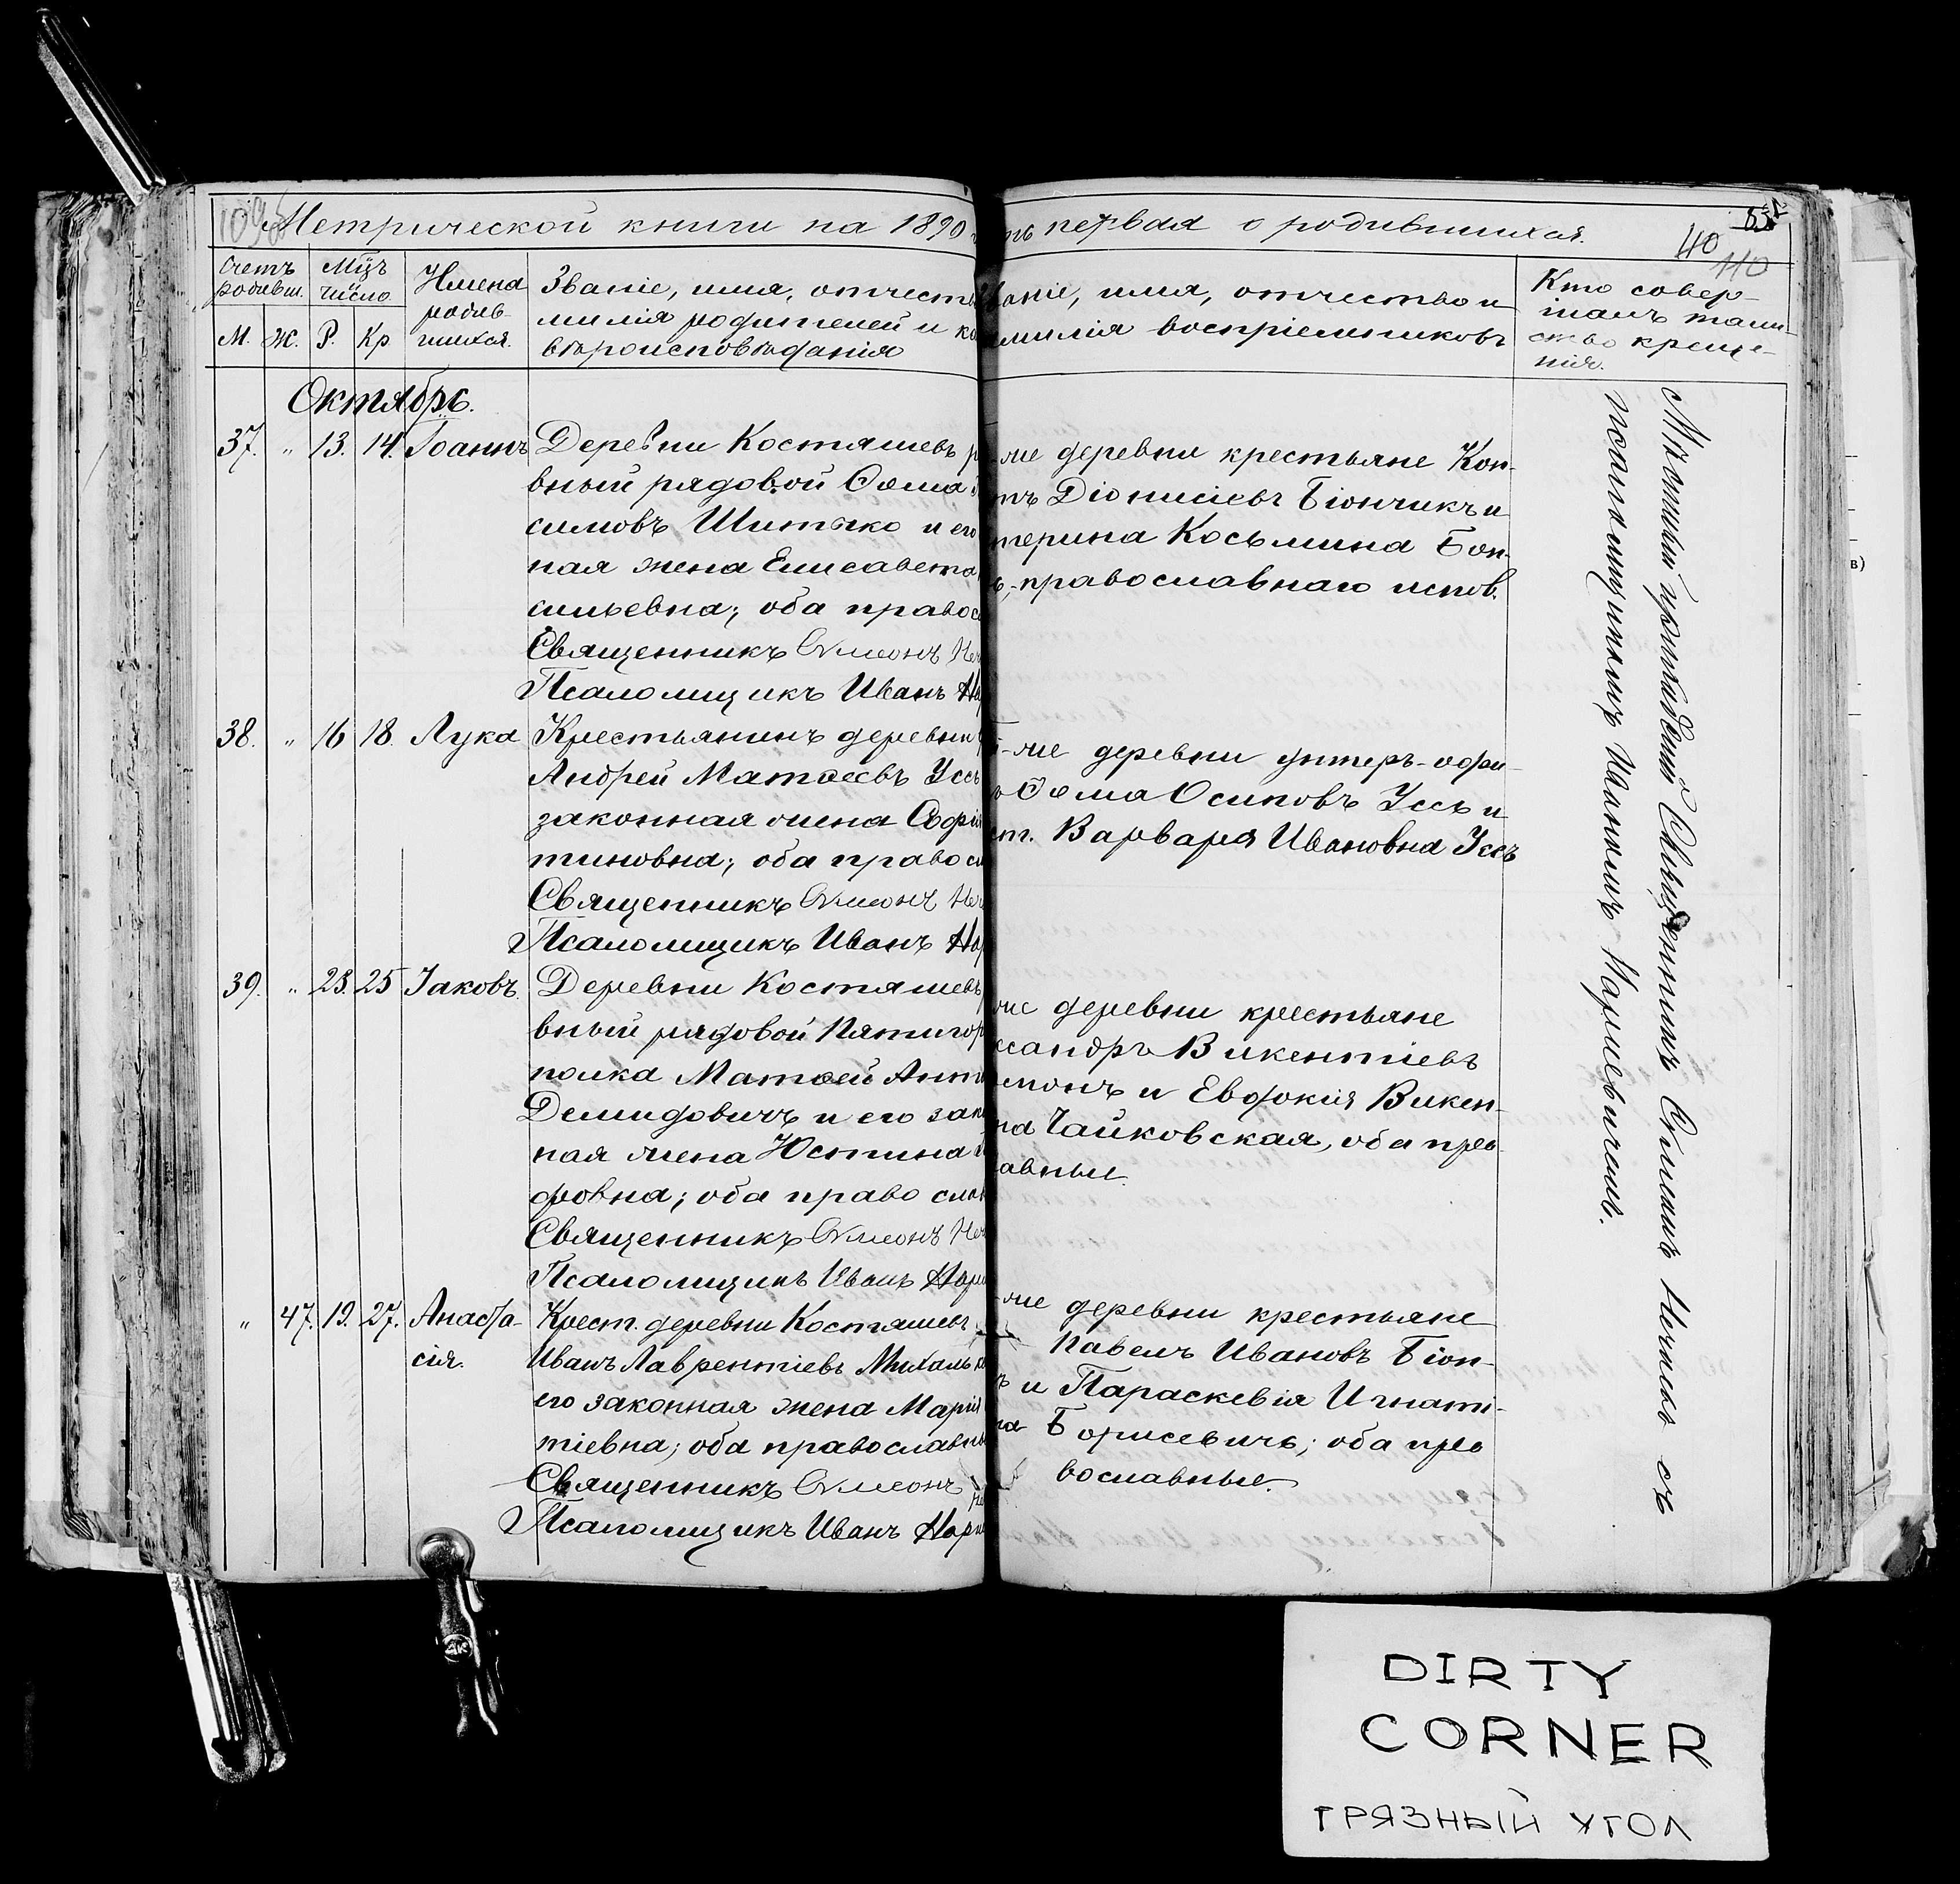 Метрической книги на 1890
первая о родившихся.
40
110
Счетъ родивш.
М. Ж.
Мцъ число
Р. Кр
Имена родив-
шихся.
Званіе, имя, отчест
милія родителей и
вѣроисповѣданія
имя, отчество и
милія воспріемниковъ
Кто совер-
шалъ таин-
ство креще-
нія.
Октябрь.
37. " 13. 14. Іоаннъ
Деревни Костяшевъ
вный рядовой Ѳома
симовъ Шитько и его
ная жена Елисавета
сильевна; оба правос
Священникъ Симеонъ
Псаломщикъ Иванъ
-же деревни крестьяне Кон-
тъ Діонисіевъ Біончикъ и
терина Косьмина Бон-
православнаго испов.
38. " 16 18. Лука
Крестьянинъ деревни
Андрей Матѳеевъ Уссъ
законная жена Софія
тиновна; оба правосл
Священникъ Симеонъ
Псаломщикъ Иванъ
-же деревни унтеръ-офи-
Ѳома Осиповъ Уссъ и
Варвара Ивановна Уссъ
39. " 23. 25 Іаковъ.
Деревни Костяшевъ
вный рядовой Пятигор
полка Матѳей Анто
Демидовичъ и его зако
ная жена Юстина
фовна; оба православ
Священникъ Симеонъ
Псаломщикъ Иванъ
же деревни крестьяне
ксандръ Викентіевъ
и Евдокія Викен-
на Чайковская, оба пра-
авные.
" 47. 19. 27. Анаста-
сія.
Крест. деревни Костяшевъ
Иванъ Лаврентіевъ Михаль
его законная жена Марія
тіевна; оба православны
Священникъ Симеонъ
Псаломщикъ Иванъ
-же деревни крестьяне
Павелъ Ивановъ Біон-
и Параскевія Игнаті-
на Борисевичъ; оба пра
вославные.
Мѣстный приходскій Священникъ Симеонъ съ
псаломщикомъ Иваномъ
DIRTY
CORNER
ГРЯЗНЫЙ УГОЛ